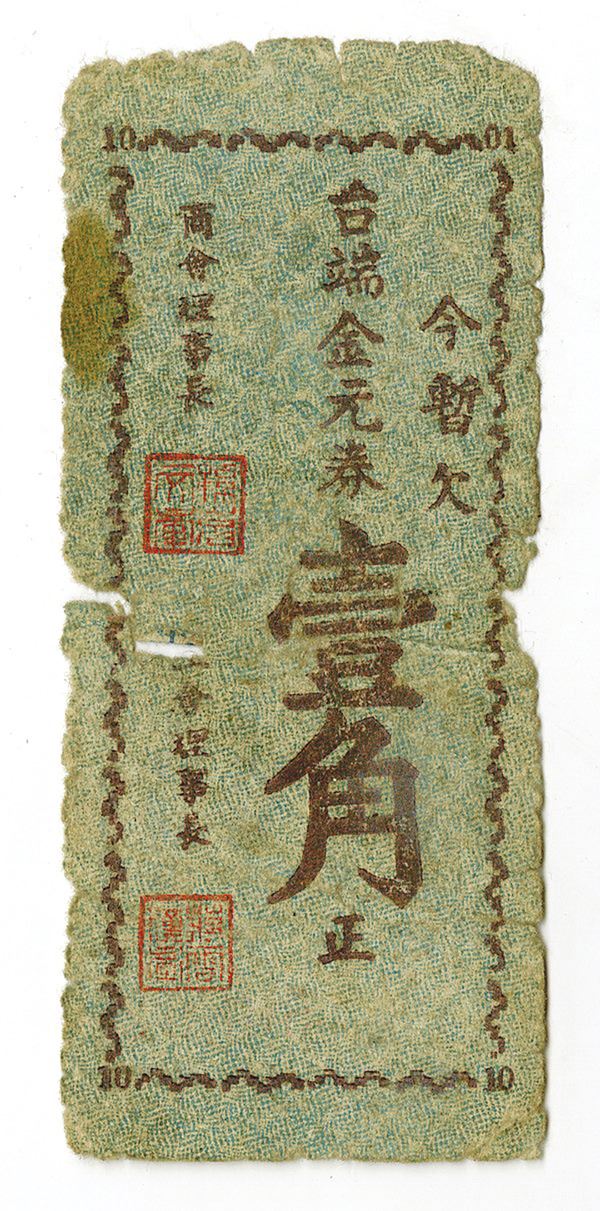 10 01
今暫欠
台端金元券
壹角
正
商會理事長
會理事長
10 10